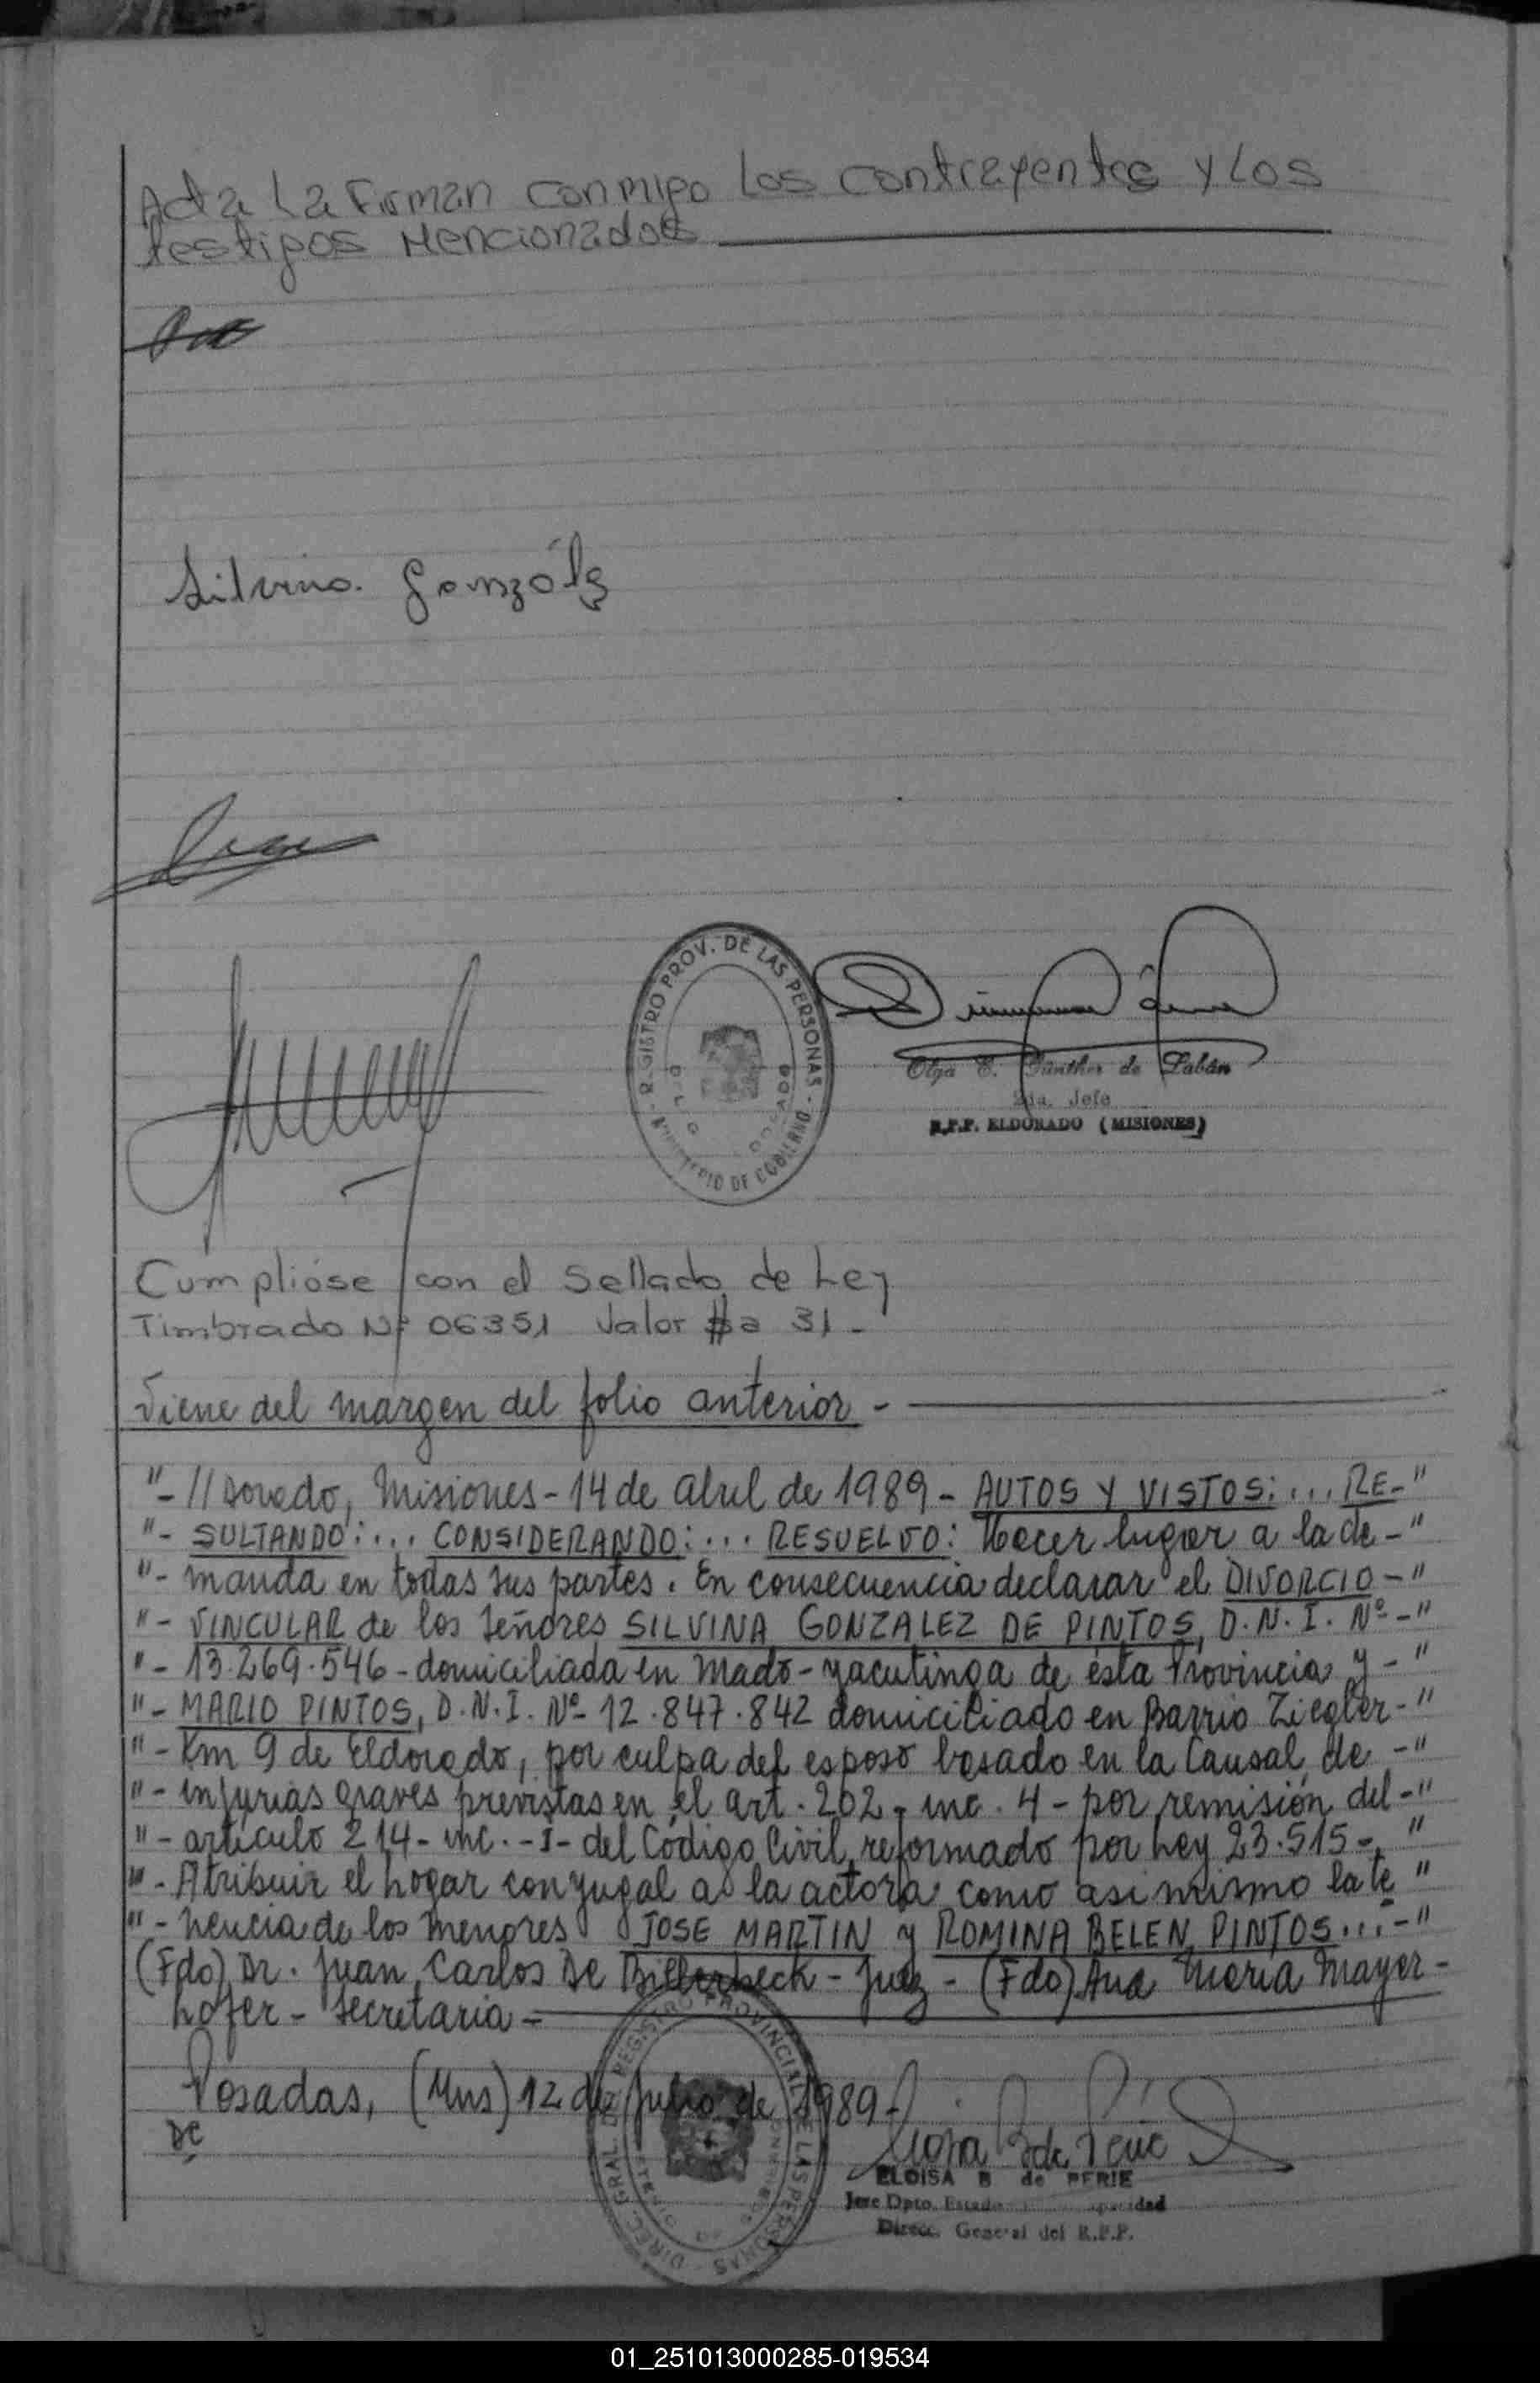 Acta La Firman conmigo Los contrayentes y Los
testigos Mencionados
Silvina González
REGISTRO PROV. DE LAS PERSONAS - MINISTERIO DE GOBIERNO
Olga E. Günther de Labán
2da. Jefe
R.P.P. ELDORADO (MISIONES)
Cumplióse con el Sellado de Ley
Timbrado Nº 06351 Valor $a 31-
Viene del margen del folio anterior -
"- //dorado, Misiones - 14 de abril de 1989 - AUTOS Y VISTOS: ... RE-"
"- SULTANDO: ... CONSIDERANDO: ... RESUELVO: Hacer lugar a la de -"
"- manda en todas sus partes. En consecuencia declarar el DIVORCIO -"
"- VINCULAR de los señores SILVINA GONZALEZ DE PINTOS, D.N.I. Nº -"
"- 13.269.546 - domiciliada en Mado - yacutinga de ésta Provincia y -"
"- MARIO PINTOS, D.N.I. Nº 12.847.842 domiciliado en Barrio Ziegler -"
"- Km 9 de Eldorado, por culpa del esposo basado en la Causal de -"
"- injurias graves previstas en el art. 202 - inc. 4 - por remisión del -"
"- artículo 214 - inc. - I - del Código Civil, reformado por Ley 23.515 -. "
"- Atribuir el hogar conyugal a la actora como asi mismo la te "
"- nencia de los menores JOSE MARTIN y ROMINA BELEN PINTOS... -"
(Fdo) Dr. Juan Carlos De Billerbeck - Juez - (Fdo) Ana Maria Mayer -
hofer - Secretaria -
Posadas, (Mns) 12 de Julio de 1989 -
DC
DIREC. GRAL. DEL REGISTRO PROVINCIAL DE LAS PERSONAS
ELOISA B de PERIE
Jefe Dpto. Estado
Direcc. General del R.P.P.
01_251013000285-019534